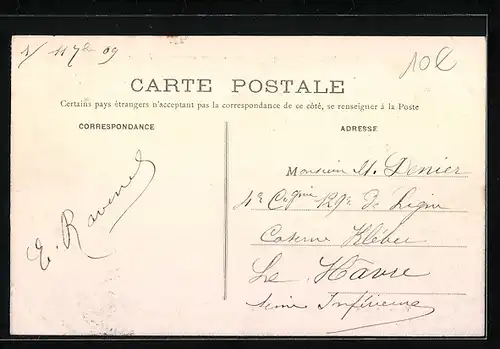 11 7bre 09
10€
CARTE POSTALE
Certains pays étrangers n'acceptant pas la correspondance de ce côté, se renseigner à la Poste
CORRESPONDANCE
ADRESSE
Monsieur H. Denier
4e Cgnie 129e De Ligne
Caserne Kléber
Le Havre
Seine Inférieure
E. Ravenel